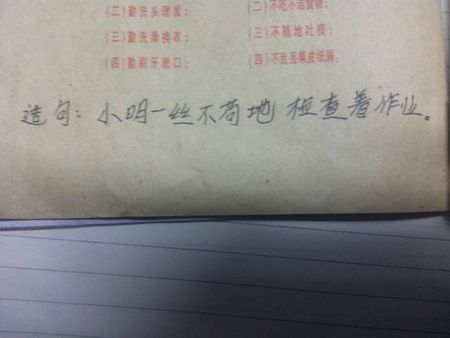 (二)勤洗头理发；
(二)不吃不洁食物；
(三)勤洗澡换衣；
(三)不随地吐痰；
(四)勤刷牙漱口；
(四)不乱丢果皮纸屑；
造句：小明一丝不苟地检查着作业。